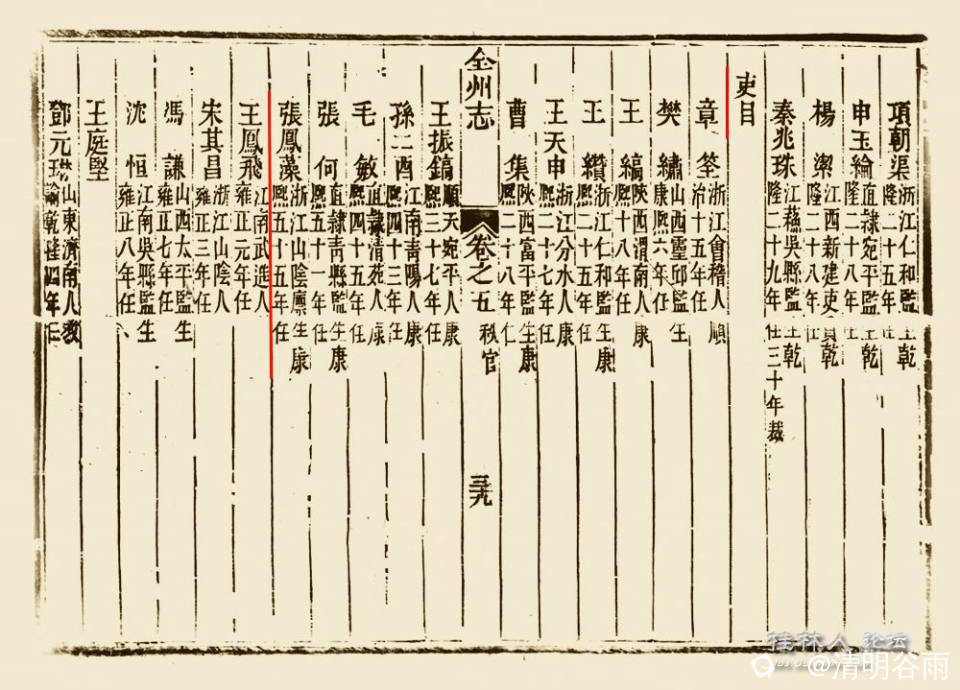 項朝渠 浙江仁和監生乾隆二十五年任
申玉綸 直隸宛平監生乾隆二十八年任
楊潔 江西新建吏員乾隆二十八年任
秦兆珠 江蘇吳縣監生乾隆二十九年任三十年裁
吏目
章筌 浙江會稽人順治十五年任
樊繡 山西靈邱監生康熙六年任
王縞 陝西渭南人康熙十八年任
王纘 浙江仁和監生康熙二十五年任
王天申 浙江分水人康熙二十七年任
曹集 陝西富平監生康熙二十八年仁
全州志 卷之五 秩官 三九
王振鎬 順天宛平人康熙三十七年任
孫二酉 江南青陽人康熙四十三年任
毛敏 直隸清苑人康熙四十五年任
張何 直隸青縣監生康熙五十一年任
張鳳藻 浙江山陰廩生康熙五十五年任
王鳳飛 江南武進人雍正元年任
宋其昌 浙江山陰人雍正三年任
馮謙 山西太平監生雍正七年任
沈恒 江南吳縣監生雍正八年任
王庭堅
鄧元 山東濟南人教諭乾隆四年任
桂林人论坛
@清明谷雨